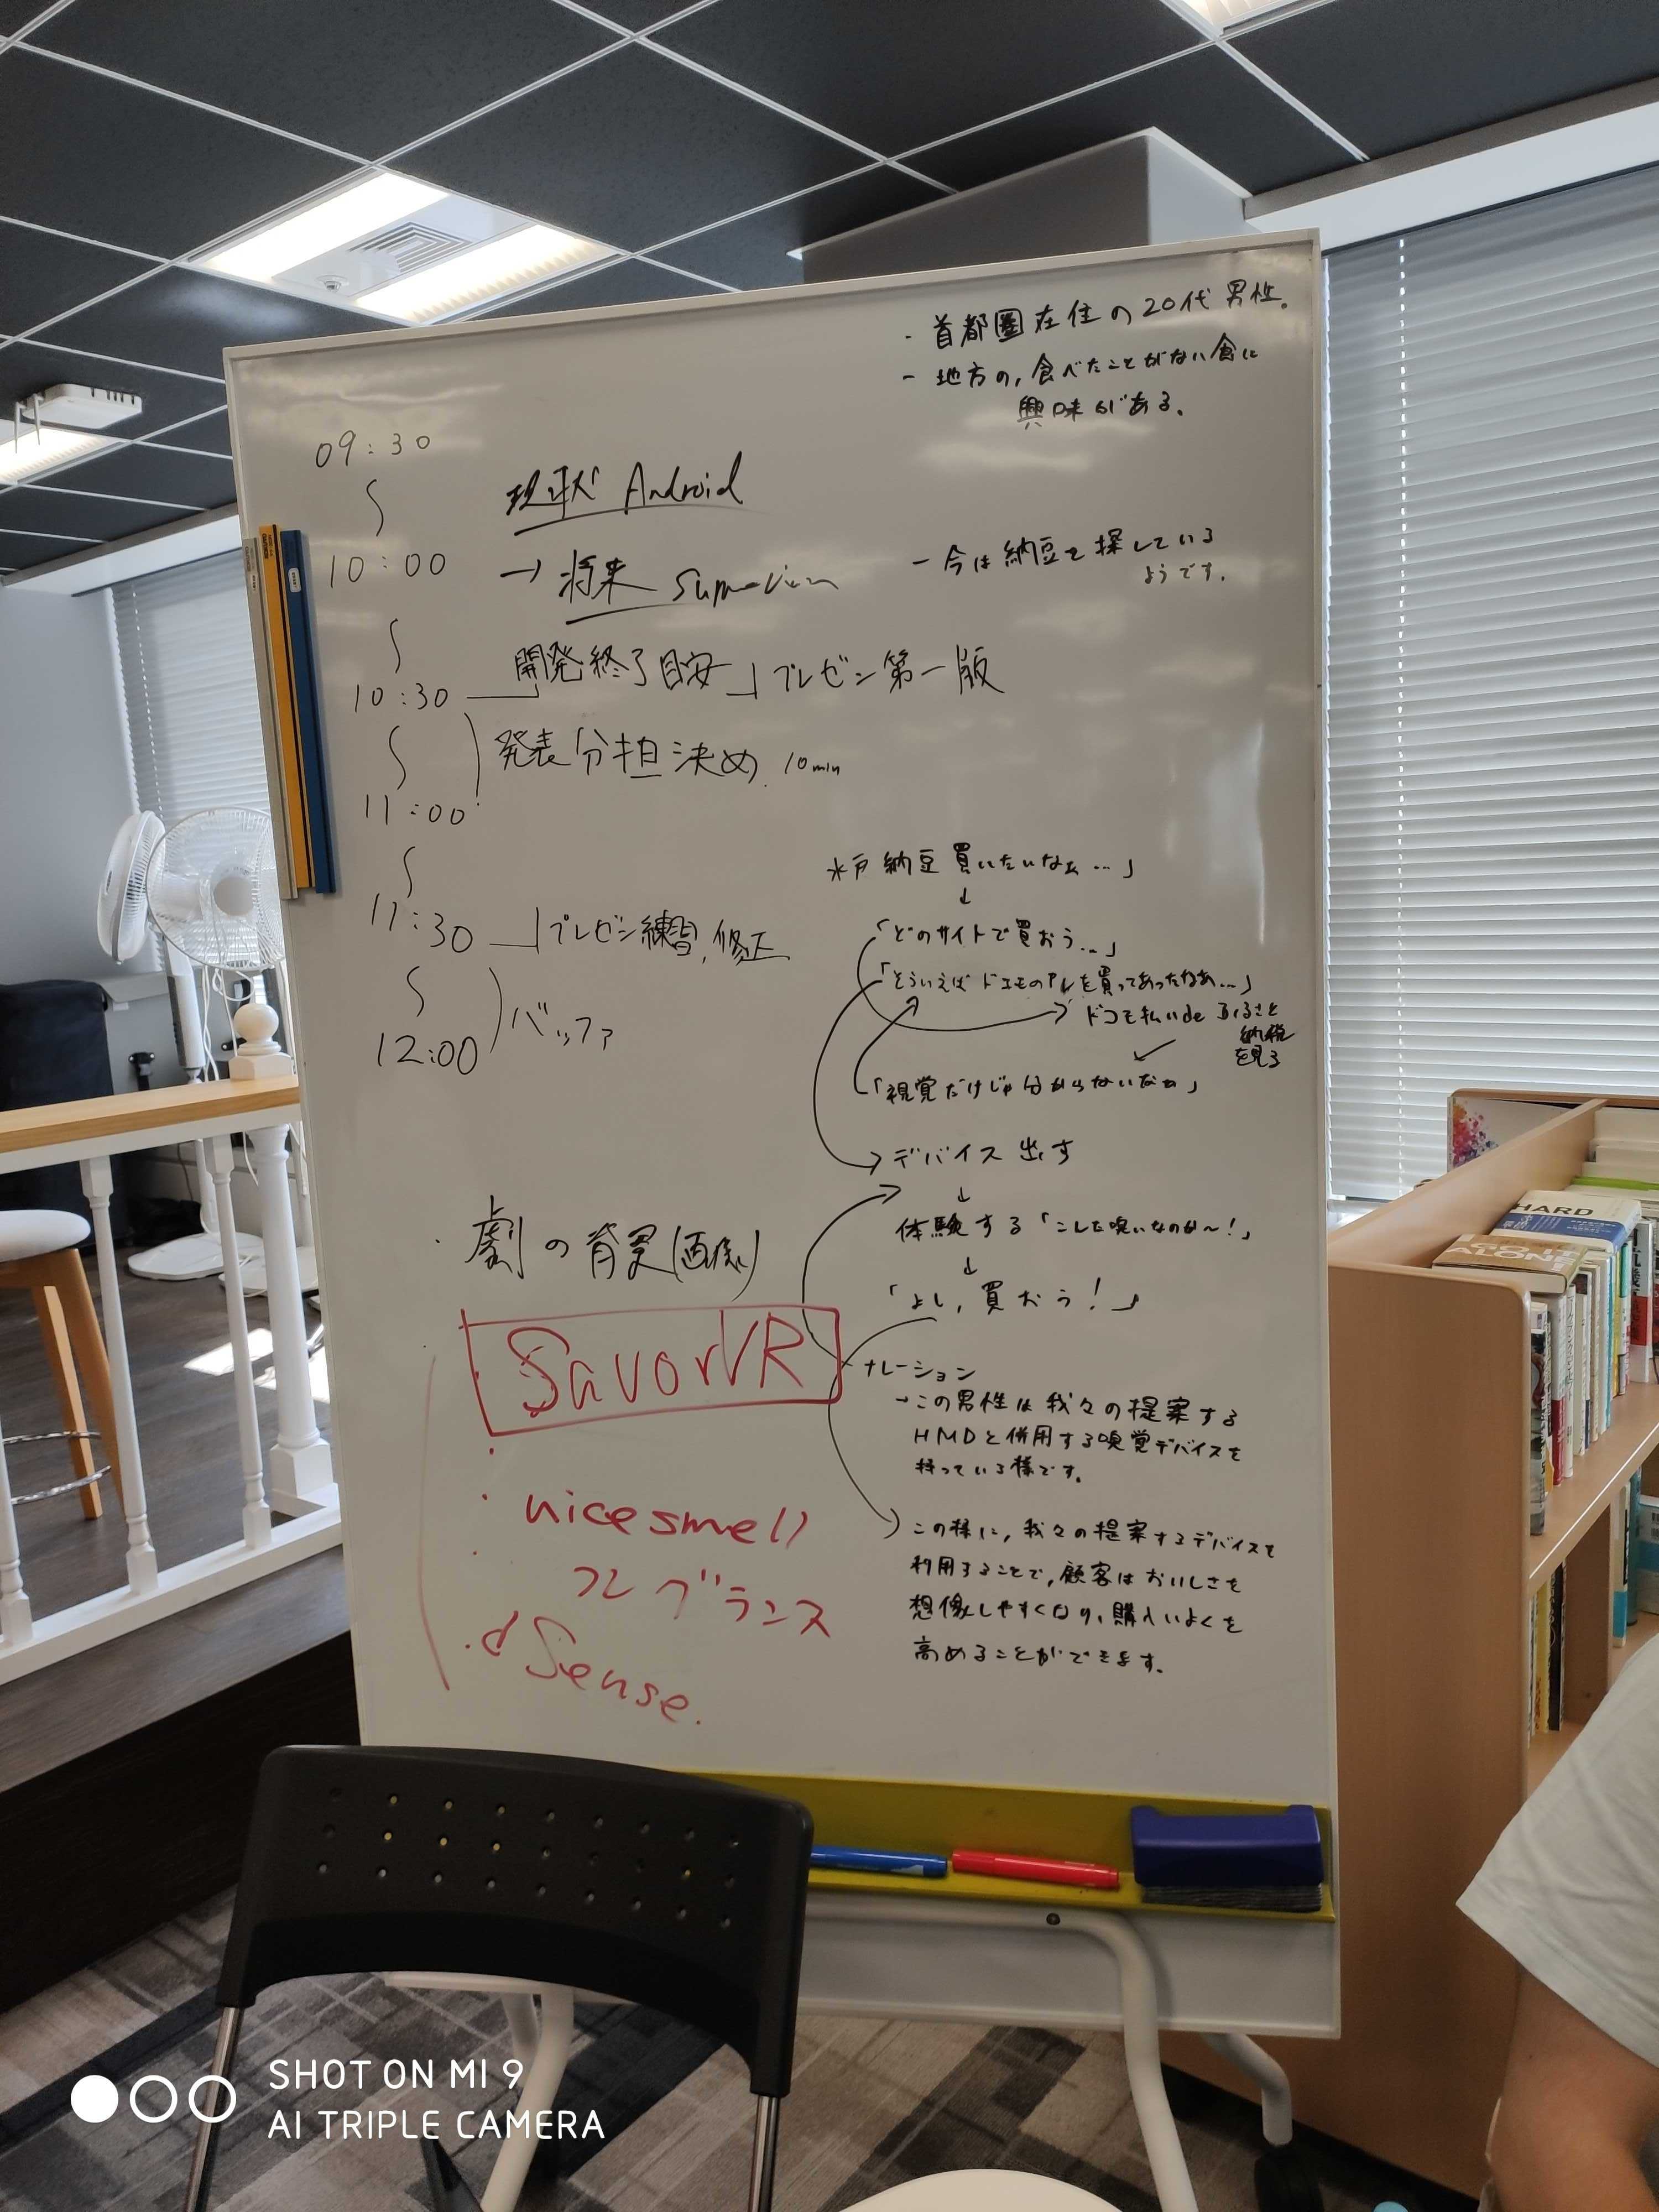 ・首都圏在住の20代男性。
- 地方の,食べたことがない食に
興味がある。
09:30
現状 Android
10:00
→ 将来
- 今は納豆を探している
ようです。
開発終了目安 プレゼン第一版
10:30
発表分担決め 10min
11:00
水戸納豆買いたいなぁ…」
↓
11:30 プレゼン練習,修正
「どのサイトで買おう…」
「そういえばドコモのアレを買ってあったなぁ…」
ドコモ払いde ふるさと
納税
を見る
バッファ
12:00
「視覚だけじゃ分からないなぁ」
デバイス出す
↓
体験する「こんな臭いなのか〜!」
↓
「よし,買おう!」
・劇の背景(画像)
SavorVR
ナレーション
→この男性は我々の提案する
HMDと併用する嗅覚デバイスを
持っている様です。
nice smell
フレグランス
・d Sense.
この様に,我々の提案するデバイスを
利用することで,顧客はおいしさを
想像しやすくなり,購入いよくを
高めることができます。
HARD
ALONE
SHOT ON MI 9
AI TRIPLE CAMERA